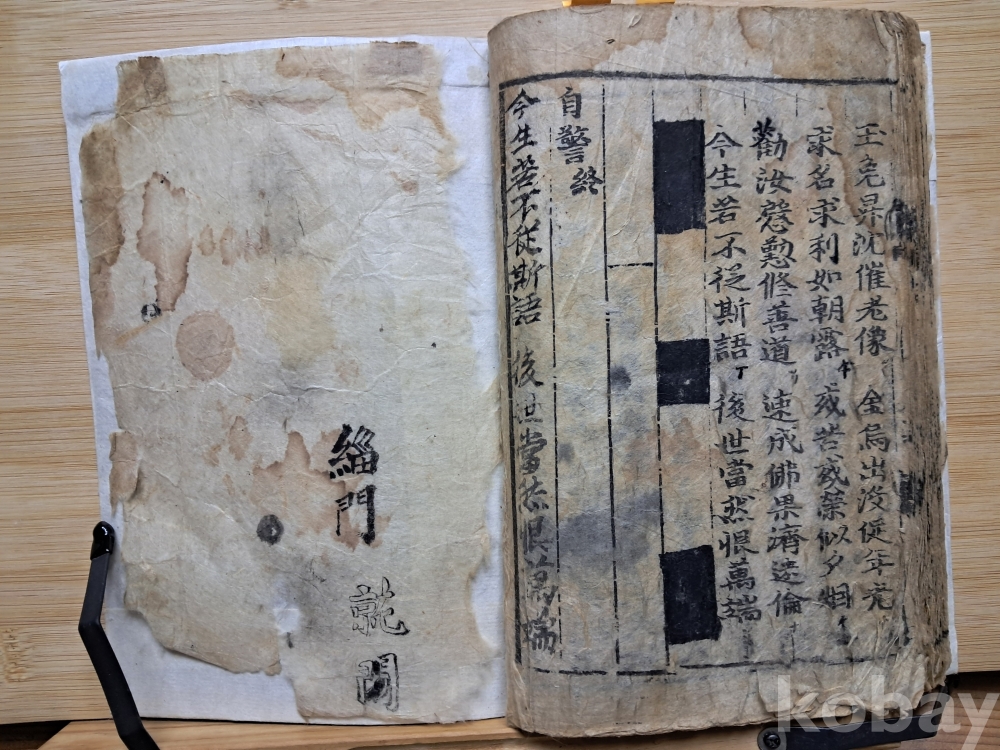 玉兎昇沈催老像 金烏出沒促年光
求名求利如朝露 或苦或榮似夕烟
勸汝慇懃修善道 速成佛果濟迷倫
今生若不從斯語 後世當然恨萬端
自警終
今生若不從斯語 後世當然恨萬端
緇門
kobay